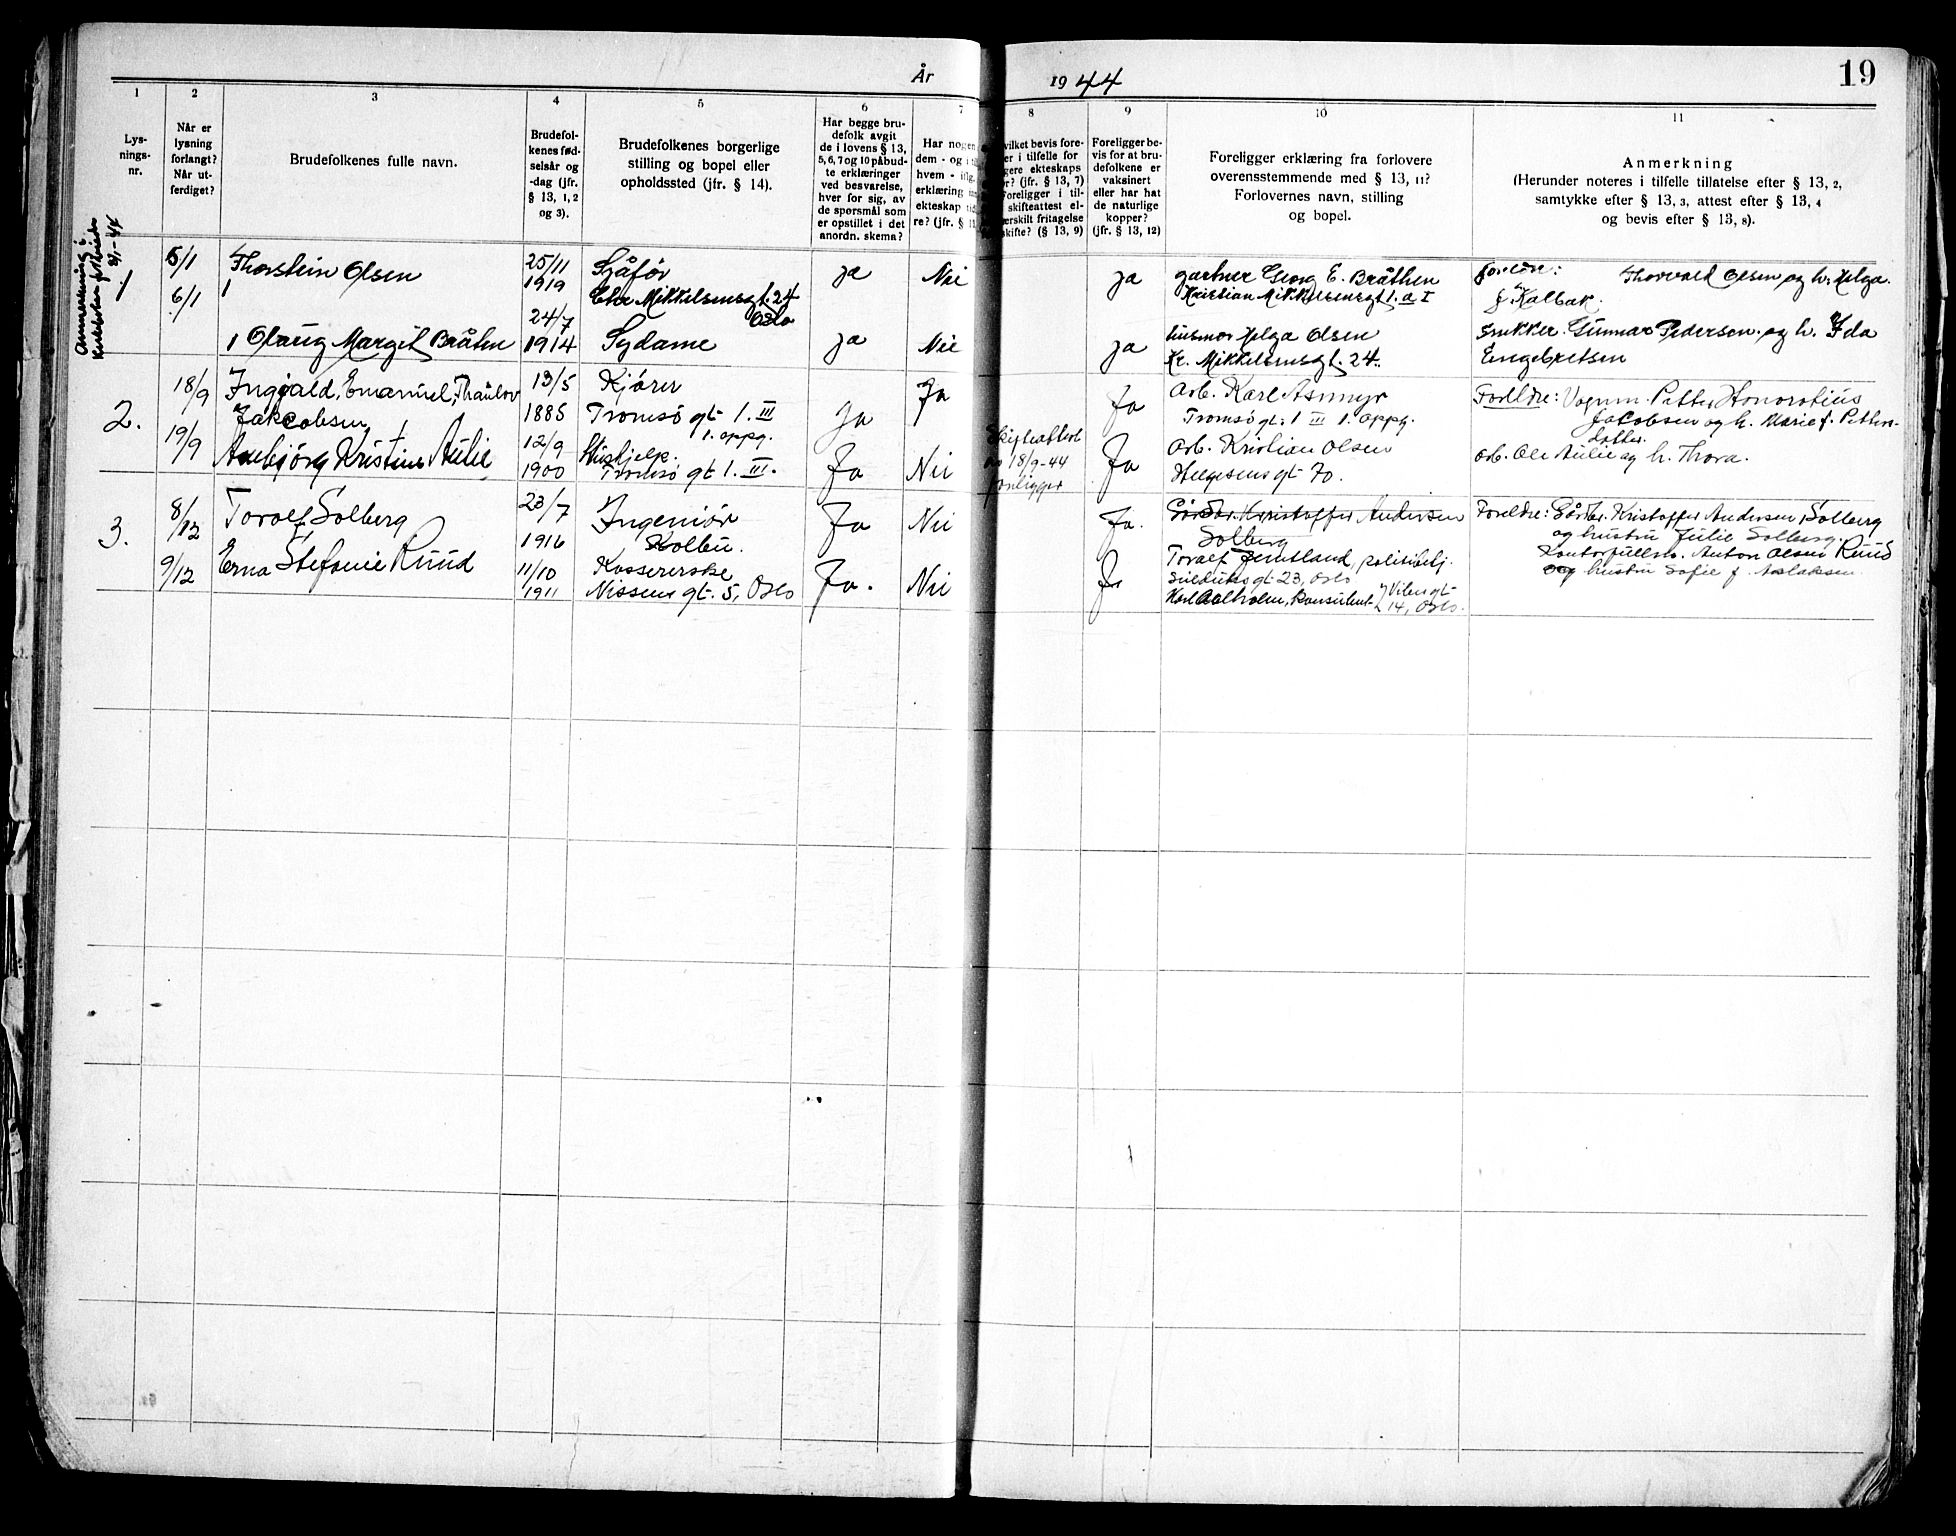 År 1944
19
1 2 3 4 5 6 7 8 9 10 11
Lys-
nings-
nr.
Når er
lysning
forlangt?
Når ut-
ferdiget?
Brudefolkenes fulle navn.
Brudefol-
kenes fød-
selsår og
-dag (jfr.
§ 13, 1, 2
og 3).
Brudefolkenes borgerlige
stilling og bopel eller
opholdssted (jfr. § 14).
Har begge bru-
defolk avgit
de i lovens § 13,
5, 6, 7 og 10 påbud-
te erklæringer
ved besvarelse,
hver for sig, av
de spørsmål som
er opstillet i det
anordn. skema?
Har nogen
dem - og i
hvem - iflg.
erklæring
ekteskap tid
re? (jfr. § 1
vilket bevis fore-
er i tilfelle for
gere ekteskaps
r? (jfr. § 13, 7)
Foreligger i til-
skifteattest el-
erskilt fritagelse
skifte? (§ 13, 9)
Foreligger be-
vis for at bru-
defolkene er
vaksinert
eller har hat
de naturlige
kopper?
(jfr. § 13, 12)
Foreligger erklæring fra forlovere
overensstemmende med § 13, 11?
Forlovernes navn, stilling
og bopel.
Anmerkning
(Herunder noteres i tilfelle tillatelse efter § 13, 2,
samtykke efter § 13, 3, attest efter § 13, 4
og bevis efter § 13, 8).
Anmerkning i
1
5/1
6/1
Thorstein Olsen
25/11
1919
Sjåfør
Chr Mikkelsensgt. 24
Oslo
ja
Nei
ja
gartner Georg E. Bråthen
Kristian Mikkelsensgt. 1. a I
foreldre: Thorvald Olsen og h. Helga
f. Kalbak.
Olaug Margit Bråten
24/7
1914
Sydame
ja
Nei
ja
husmor Helga Olsen
Kr. Mikkelsensgt. 24.
snekker Gunnar Pedersen og h. Ida
Engebretsen
2.
18/9
19/9
Ingvald, Emanuel, Thaulov
Jakcobsen,
13/5
1885
Kjører
Tromsø gt 1. III
1. oppg.
Ja
Ja
Ja
Arb. Karl Asmyr
Tromsø gt: 1 III 1. oppg.
Foreldre: Vognm. Petter Honoratius
Jacobsen og h. Marie f. Petters-
datter.
Aasbjørg Kristine Aulie
12/9
1900
Hushjelp.
Tromsø gt 1. III.
Ja
Nei
Skifteattest
av 18/9-44
foreligger
Ja
Arb. Kristian Olsen
Helgesens gt 70.
Arb. Ole Aulie og h. Thora.
3.
8/12
9/12
Toralf Solberg
23/7
1916
Ingeniør
Kolbu.
Ja
Nei
Ja.
Gårdbr. Kristoffer Andersen
Solberg
Foreldre: Gårdbr. Kristoffer Andersen Solberg
og hustru Julie Solberg.
Erna Stefanie Ruud
11/10
1911
Kassererske
Nissens gt. 5, Oslo
Ja.
Nei
Ja
Toralf Jemtland, politibetj.
gt. 23, Oslo
Karl Aalholm, konsulent Vibesgt
14, Oslo.
Kontorfullm. Anton Olsen Ruud
og hustru Sofie f. Aslaksen.